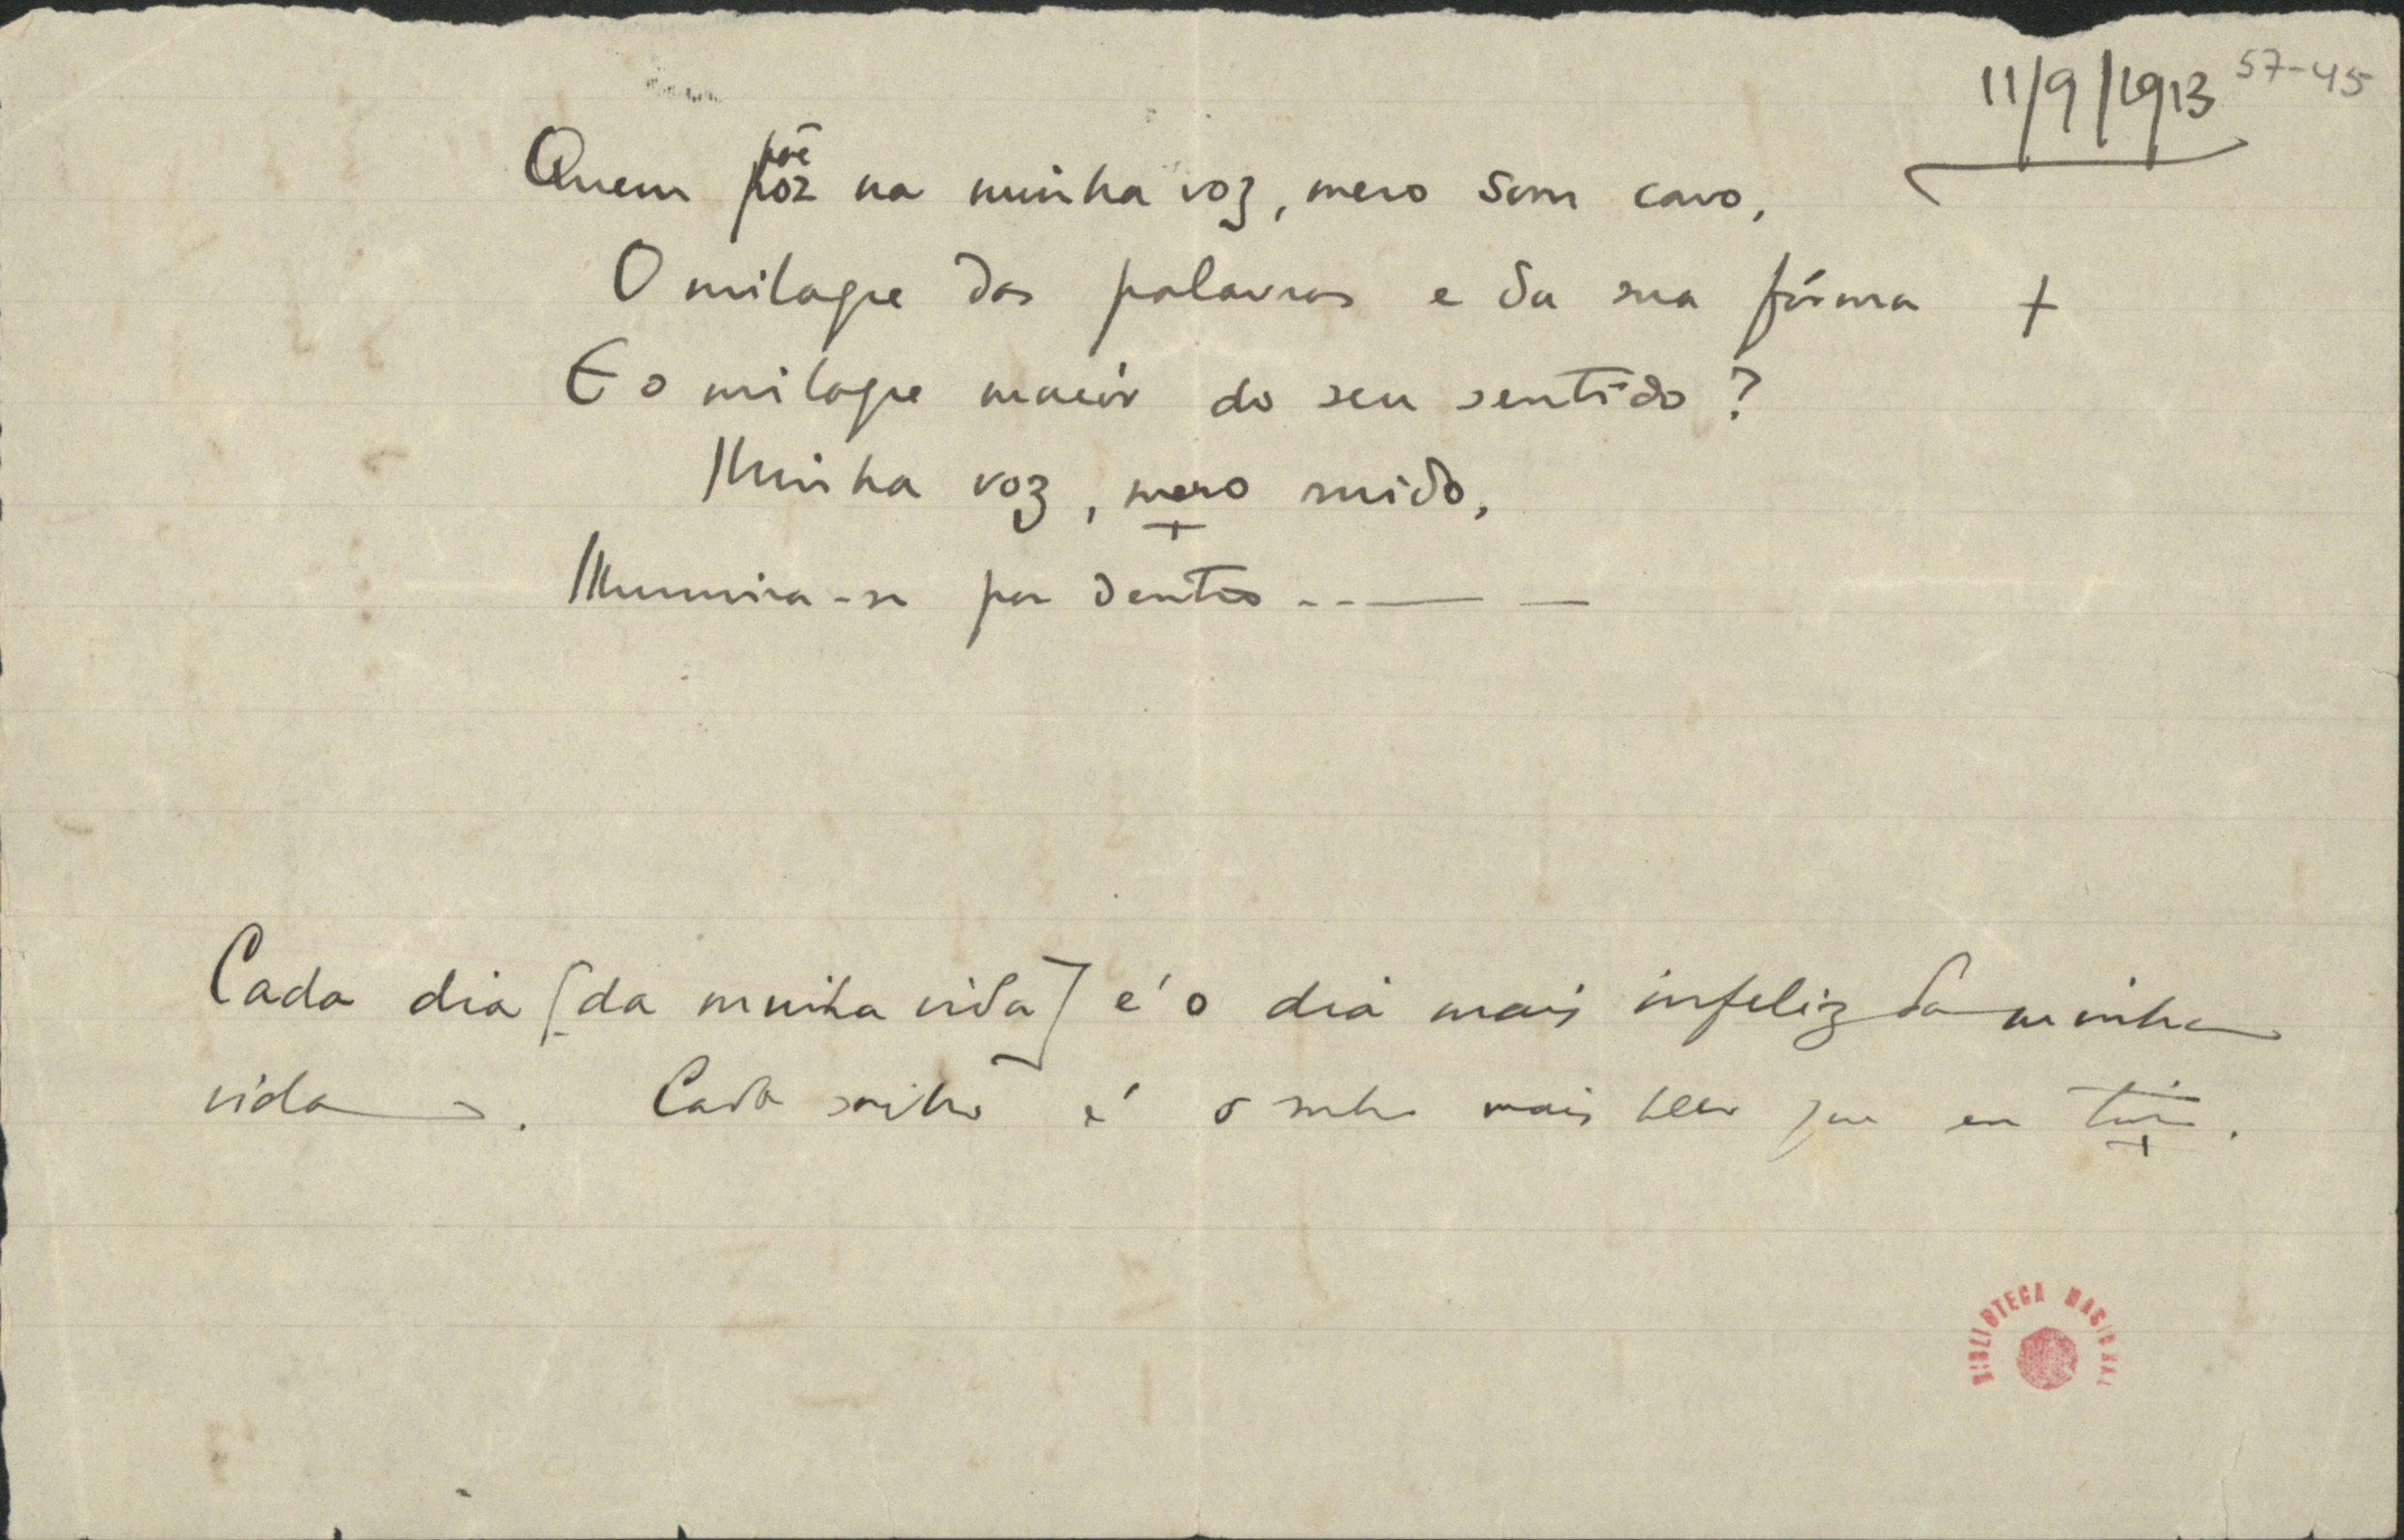 11/9/1913 57-45
põe
Quem pôz na minha voz, mero som cavo,
O milagre das palavras e da sua fórma +
E o milagre maiór do seu sentido?
Minha voz, mero ruido,
Illumina-se por dentro
Cada dia [da minha vida] é o dia mais infeliz da minha
vida. Cada sonho é o sonho mais bello que eu tive.
BIBLIOTECA NACIONAL